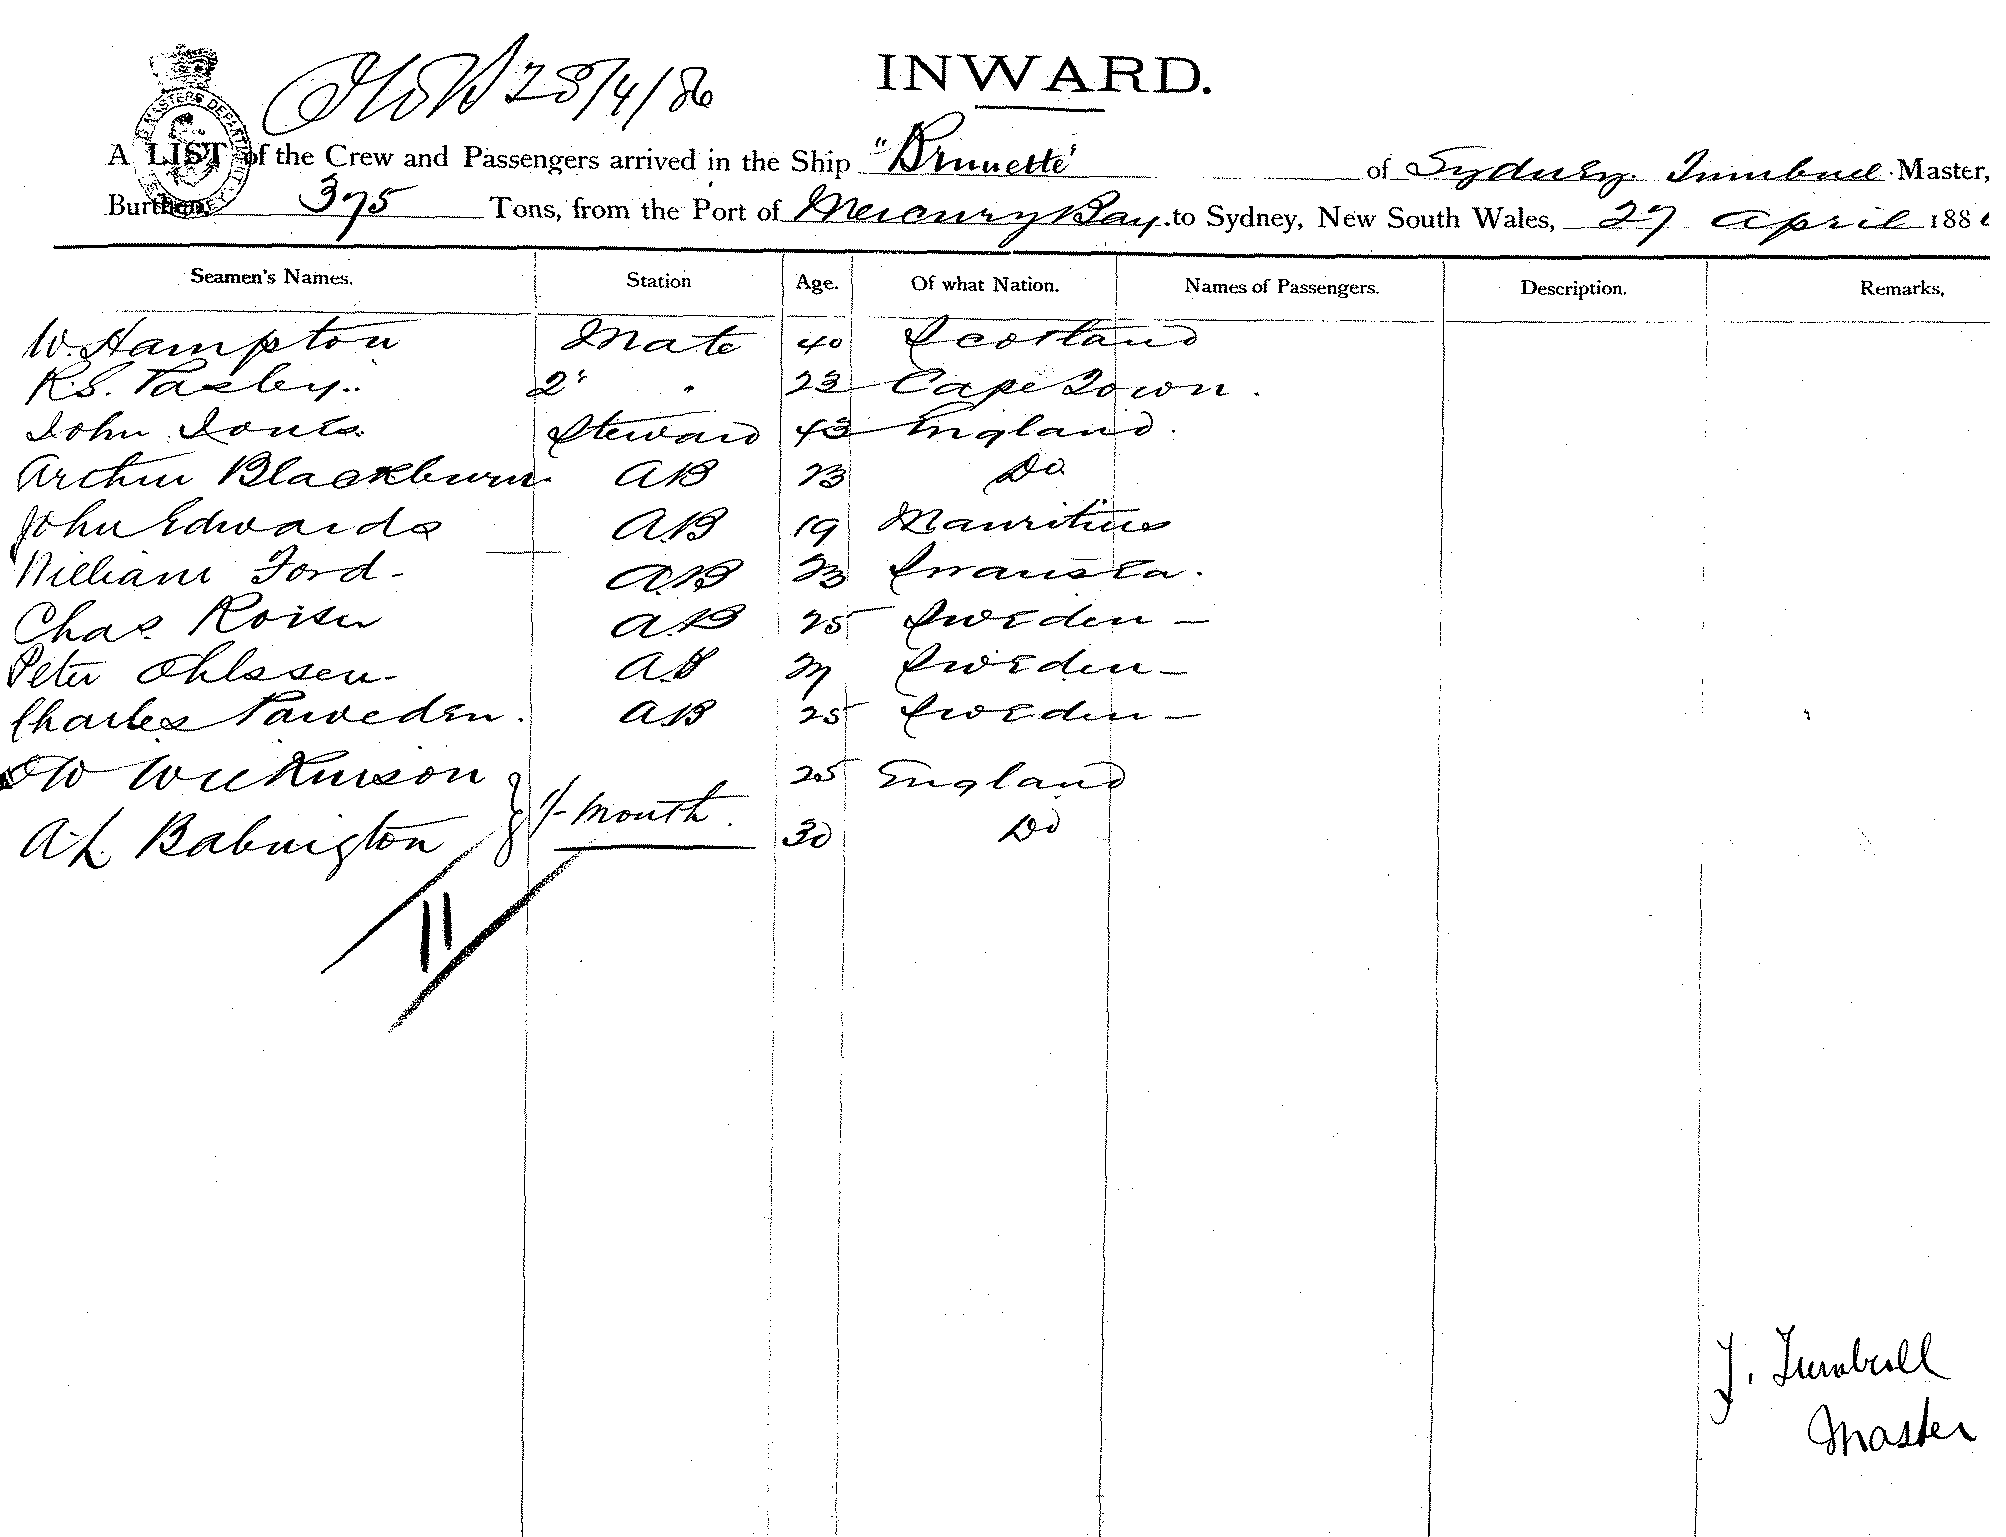 28/4/86
INWARD.
A LIST of the Crew and Passengers arrived in the Ship "Brunette" of Sydney Turnbull Master,
Burthen, 375 Tons, from the Port of Mercury Bay. to Sydney, New South Wales, 27 April 188
Seamen's Names. Station Age. Of what Nation. Names of Passengers. Description. Remarks,
W. Hampton Mate 40 Scotland
R.S. Pasley. 2d " 23 Cape Town.
John Jones. Steward 43 England.
Arthur Blackburn. AB 23 Do
John Edwards AB 19 Mauritius
William Ford - AB 23 Swansea.
Chas. AB 25 Sweden -
Peter Ohlssen - AB Sweden -
Charles AB 25 Sweden -
W Wilkinson 25 England
1/- Month.
A L Babington 30 Do
11
J. Turnbull
Master